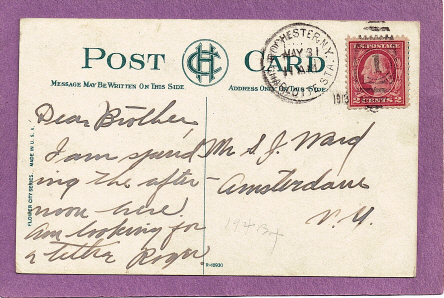 POST CARD
MESSAGE MAY BE WRITTEN ON THIS SIDE
ADDRESS ONLY ON THIS SIDE
ROCHESTER, N.Y.
MAY 31
STA.
U.S. POSTAGE
2 CENTS 2
Dear Brother,
I am spend
ing the after-
noon here.
Am looking for
a letter Roger
Mr S. J. Ward
Amsterdam
N. Y.
FLOWER CITY SERIES. MADE IN U.S.A.